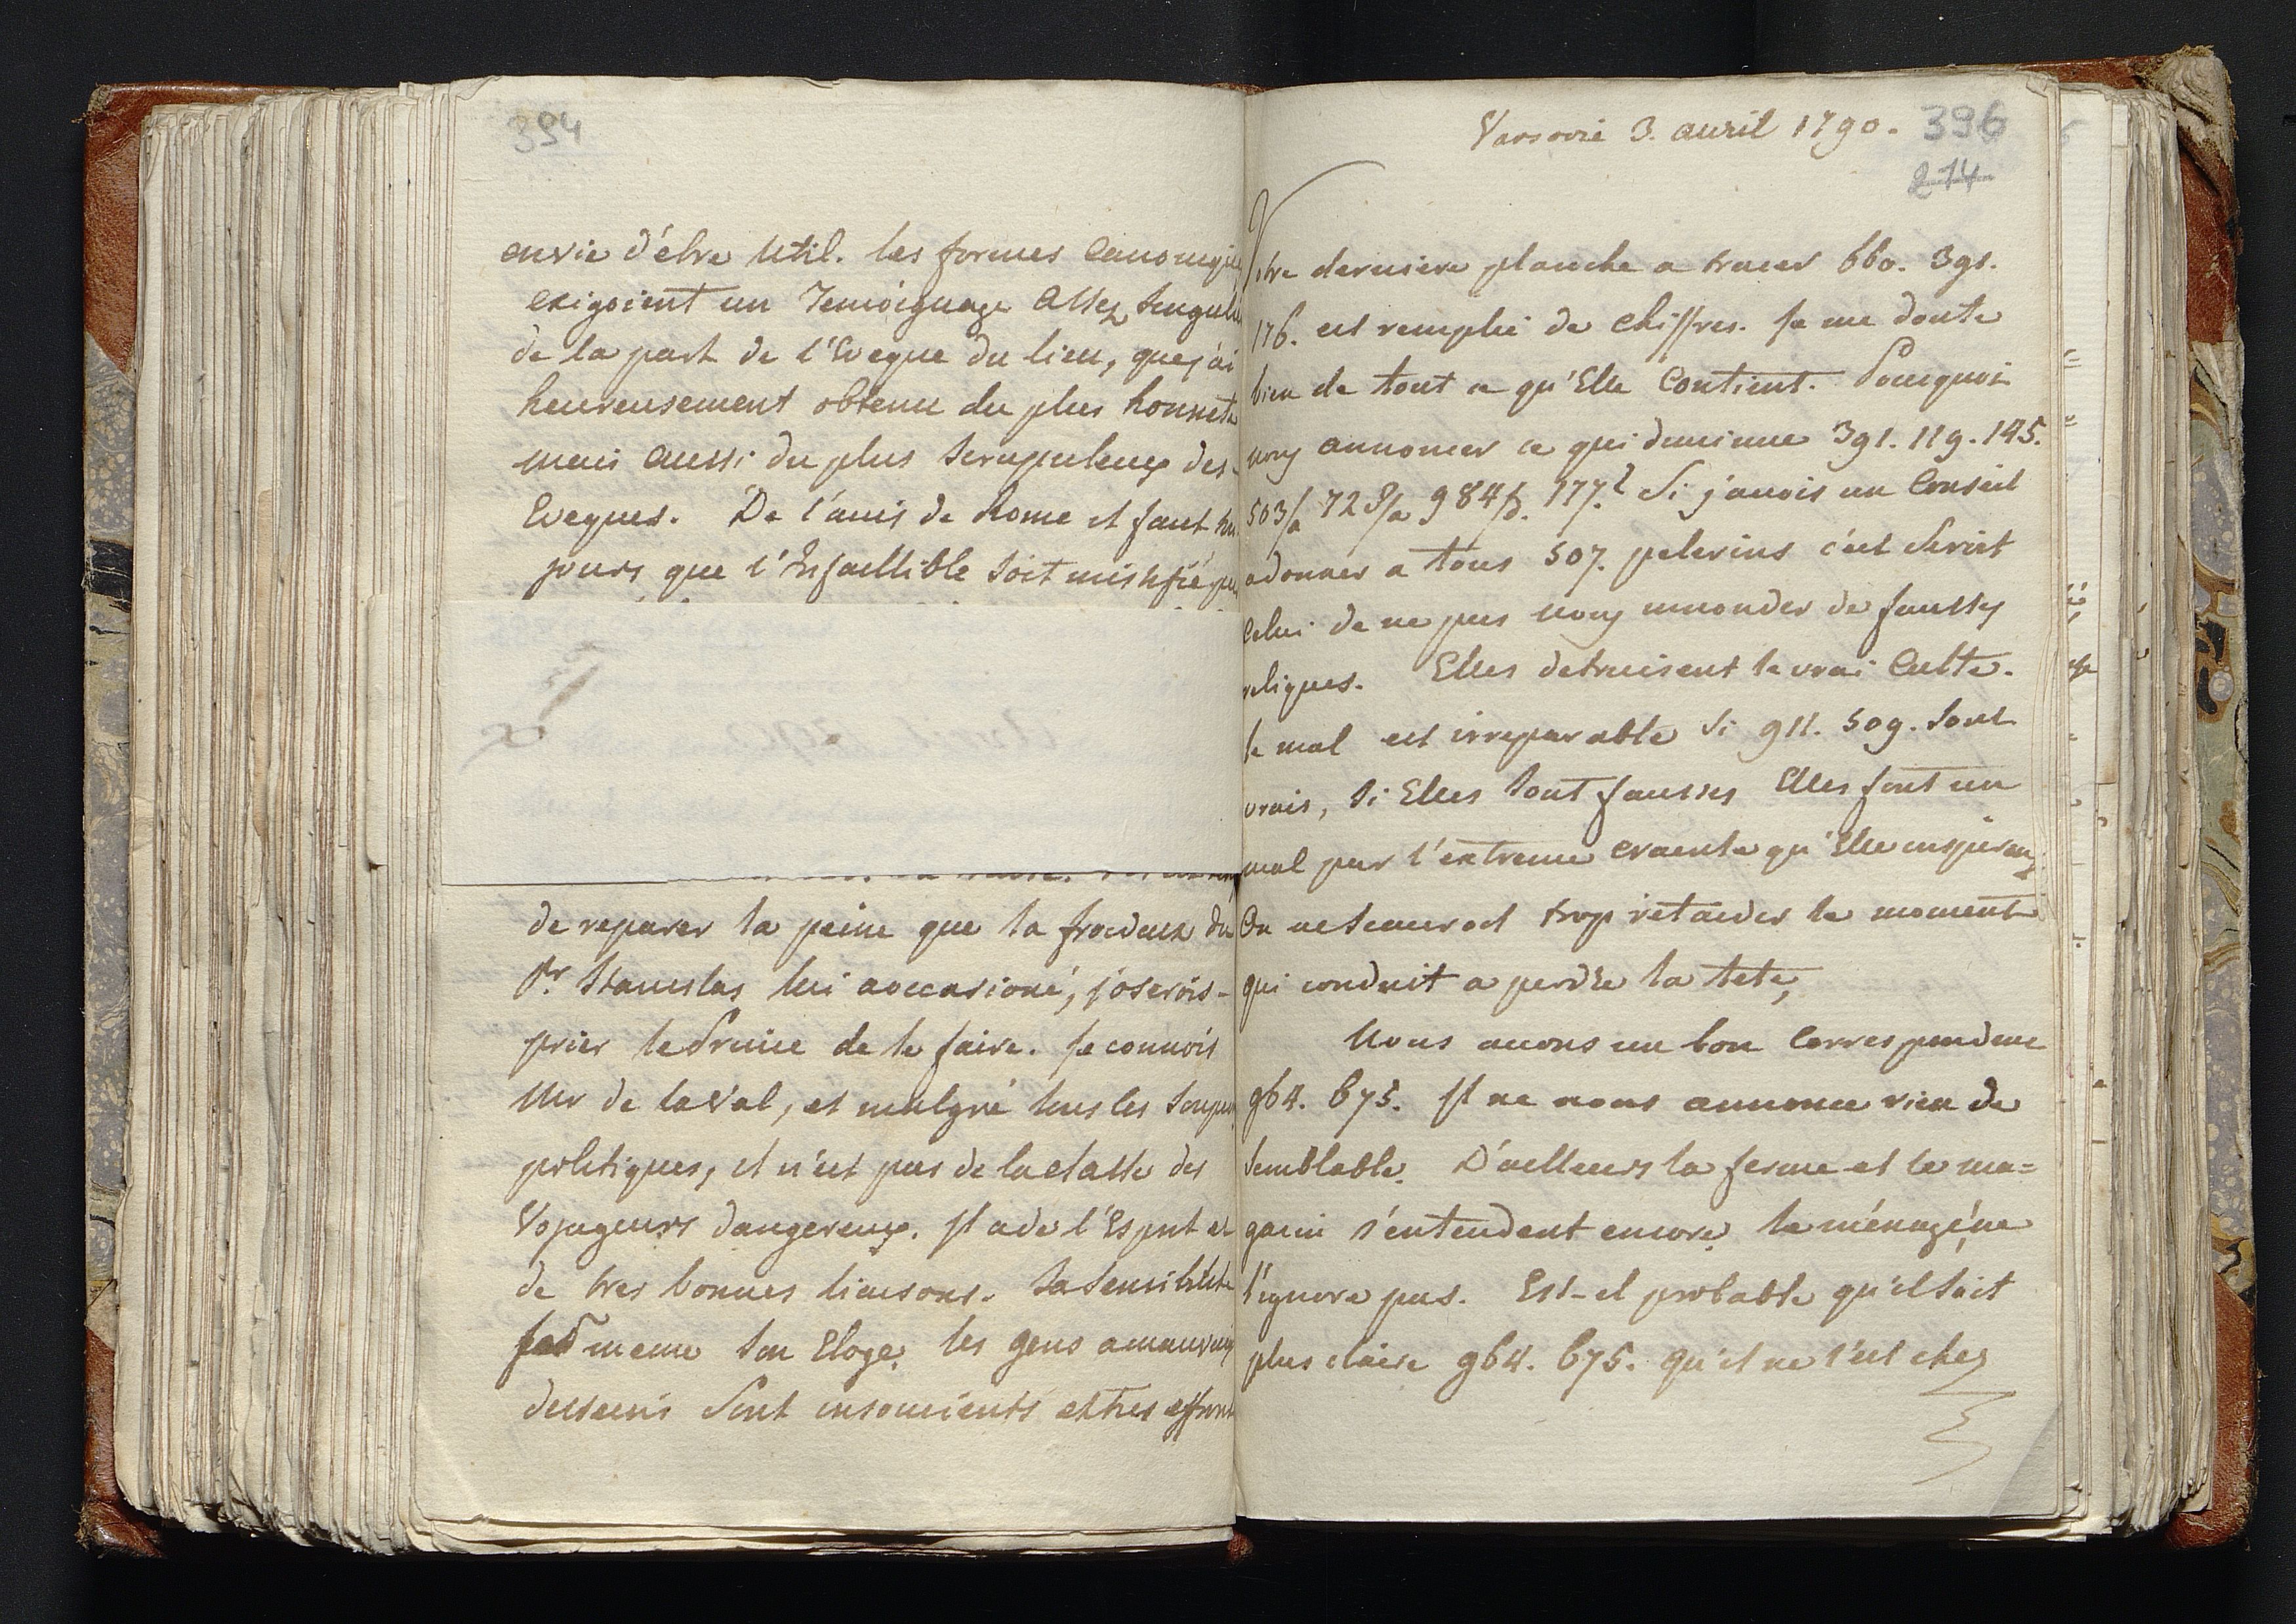 394
envie d'être util. les formes Canoniqu
exigoient un Temoignage Assez singuli
de la part de l'Eveque du lieu, que j'ai
heureusement obtenu du plus honnete
mais aussi du plus scrupuleux des
Eveques. De l'avis de Rome il faut tou
jours que l'Infaillible soit mistifié
de reparer la peine que la froideur du
Pr. Stanislas lui a occasioné, j'oserois
prier le Prince de le faire. Je connois
Mr de Laval, et malgré tous les soupc
politiques, il n'est pas de la classe des
Voyageurs dangereux. Il a de l'Esprit et
de tres bonnes liaisons. Sa sensibilité
fait meme son Eloge, les gens a mauvais
desseins sont insoucients et tres effront
Varsovie 3. avril 1790. 396
214
Votre derniere planche a tracer 660. 391.
176. est remplie de chiffres. Je me doute
bien de tout ce qu'Elle Contient. Pourquoi
nous annoncer ce qui diminue 391. 119. 145.
503/a 728/a 984/b. 177.? Si j'avois un Conseil
a donner a tous 507. pelerins c'est seroit
Celui de ne pas nous innonder de fausses
reliques. Elles detruisent le vrai Culte.
le mal est irreparable si 911. 509. sont
vrais, si Elles sont fausses Elles font un
mal par l'extreme crainte qu'Elle inspirent
On ne sauroit trop retarder le moment
qui conduit a perdre la tete,
Nous avons un bon Correspondent
964. 675. Il ne nous annonce rien de
semblable. D'ailleurs la ferme et le ma=
gacin s'entendent encore, le ménage ne
l'ignore pas. Est-il probable qu'il soit
plus claire 964. 675. qu'il ne l'est chez